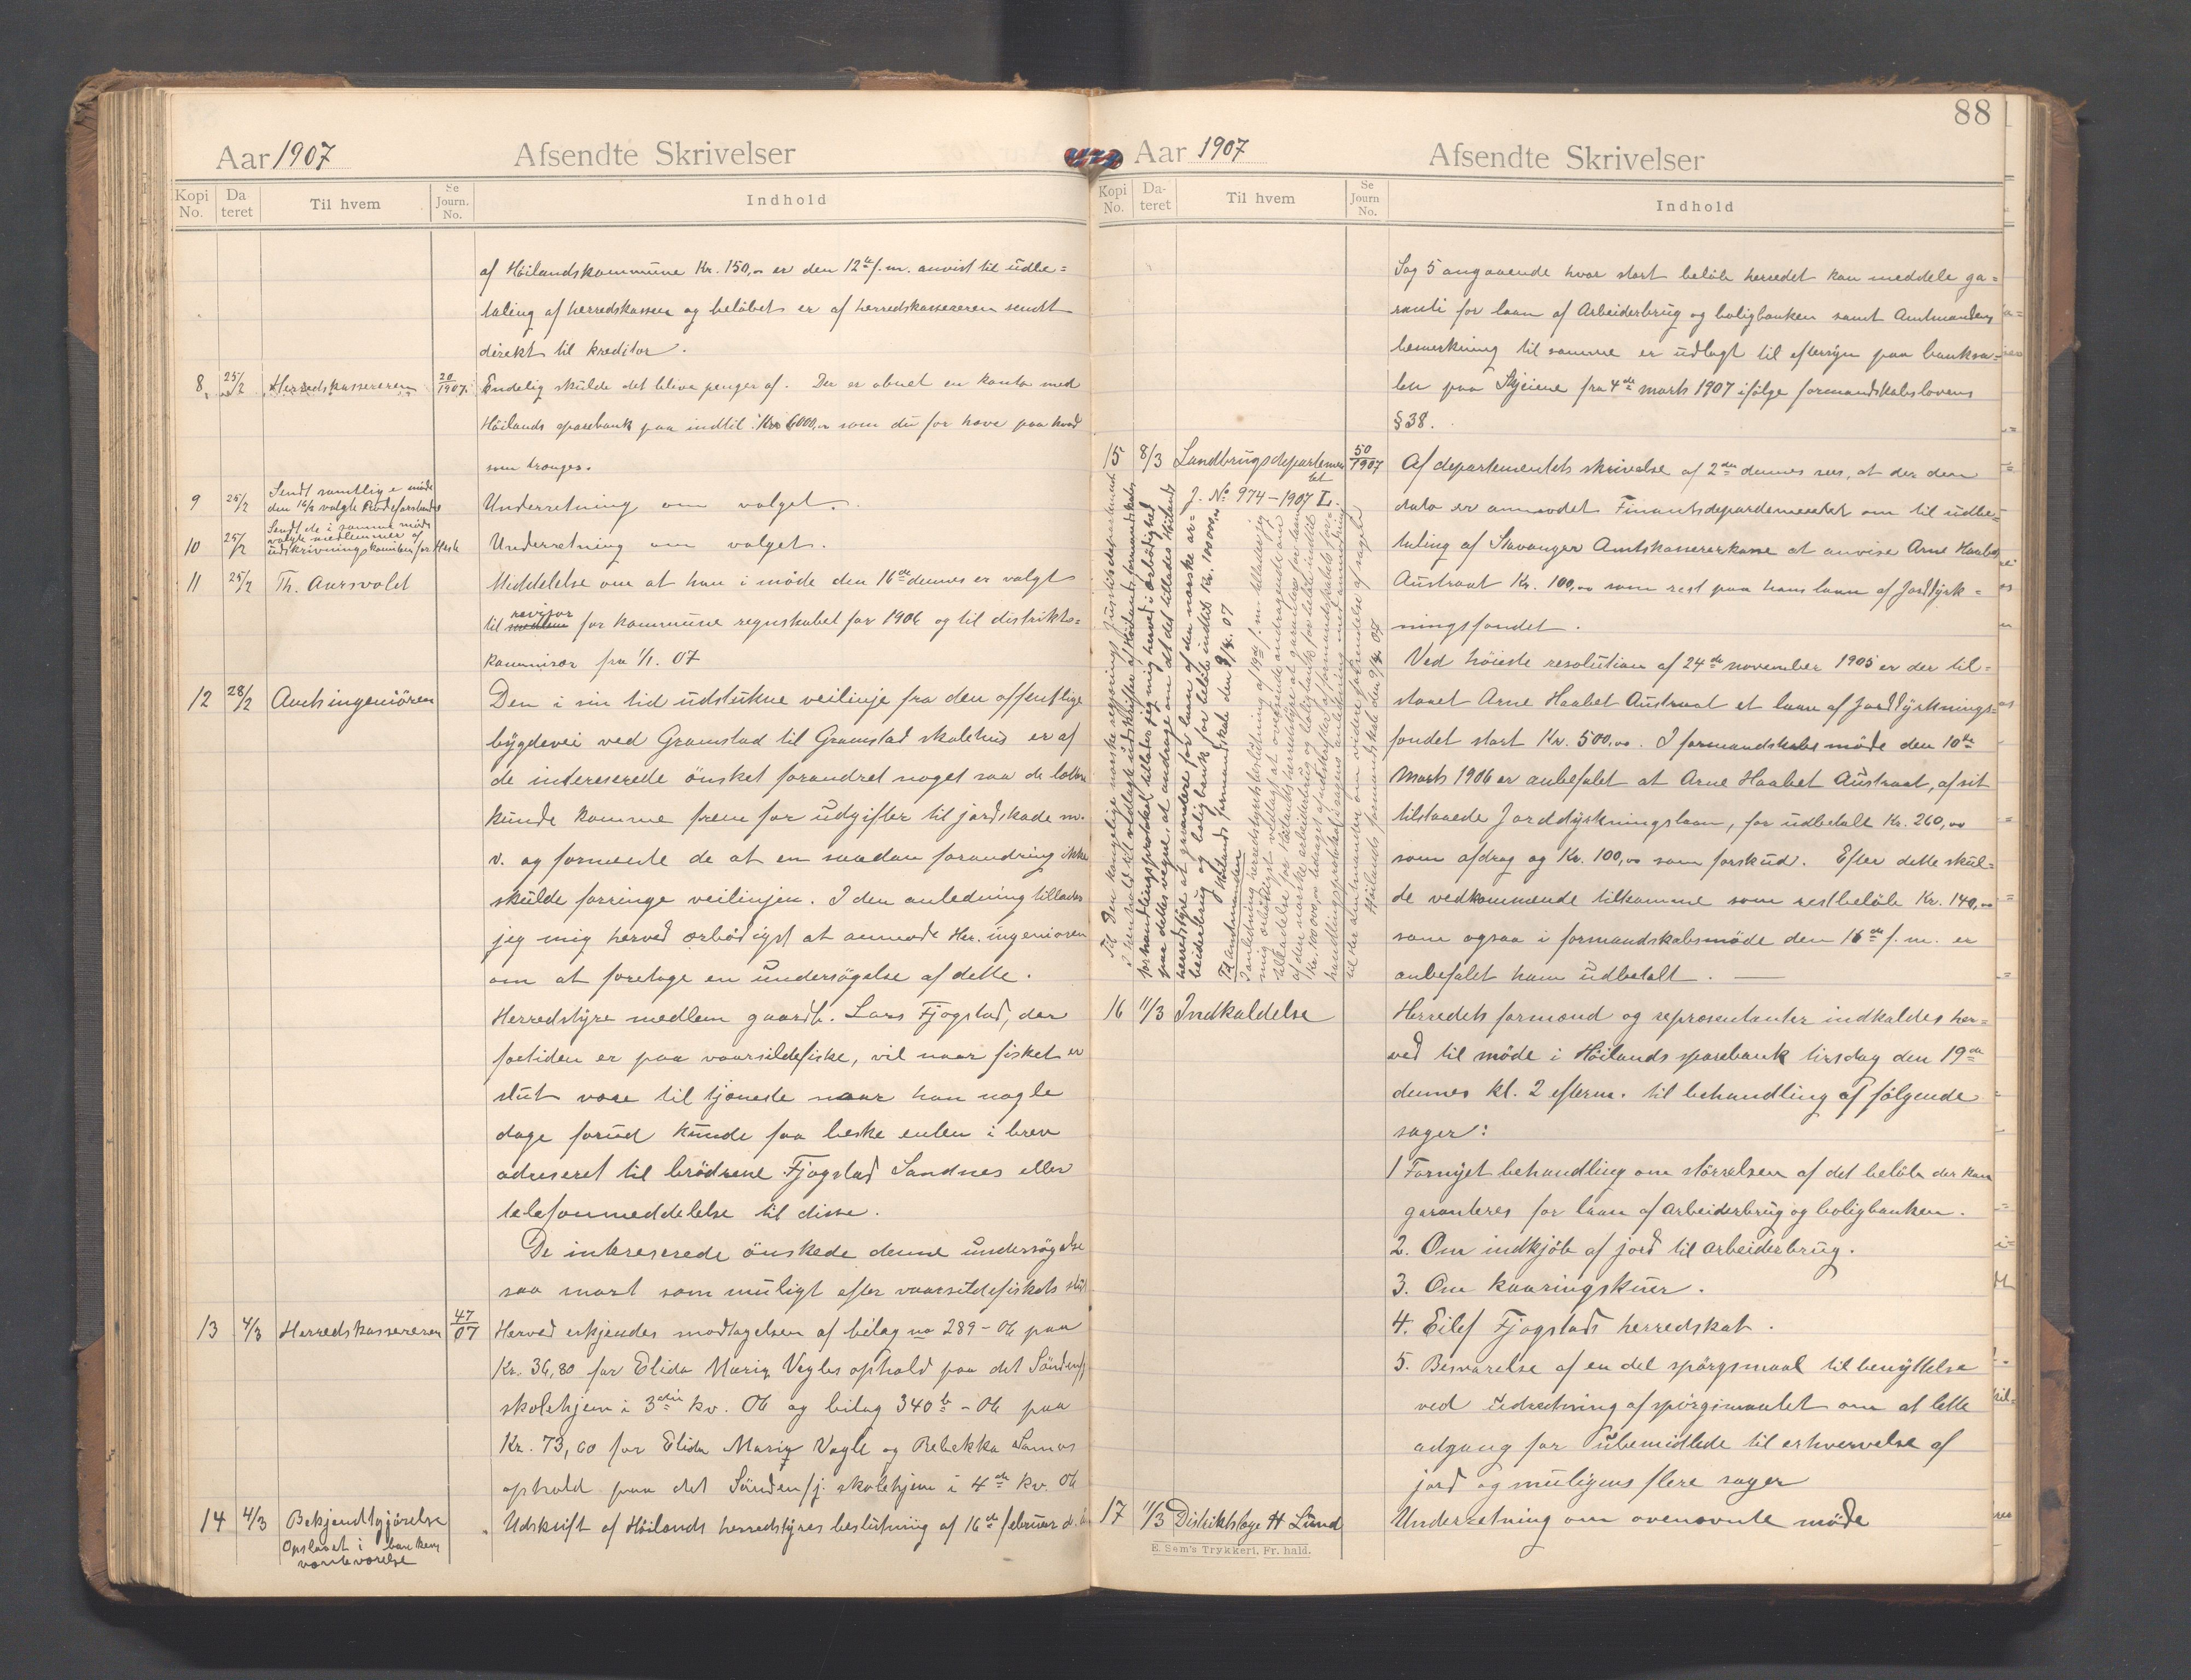 Aar 1907
Afsendte Skrivelser
Kopi No.
Da teret
Til hvem
Se Journ. No.
Indhold
af Höilandskommune Kr. 150,00 er den 12te f. m. anvist til udbe=
taling af herredskassen og belöbet er af herredskassereren sendt
direkt til kreditor.
8 25/2 Herredskassereren 20/1907 Endelig skulde det blive penger af. Der er abnet en konto med
Höilands sparebank paa indtil Kr 6000,00 som du for have paa hvad
som tranges.
9 25/2 Sendt samtlige i möde den 16/2 valgte Rodeforstandere Underretning om valget.
10 25/2 Sendt de i samme möde valgte medlemmer af udskrivningskomiteen for Heste Underretning om valget.
11 25/2 Th. Aarsvold Middelelse om at han i möde den 16de dennes er valgt
til medlem revisor for kommune regnskabet for 1906 og til distrikts=
kommisær fra 1/1. 07
12 28/2 Amtsingeniören Den i sin tid udstukne veilinje fra den offentlige
bygdevei ved Gramstad til Gramstad skolehus er af
de intereserede önsket forandret noget saa de lettere
kunde komme frem for udgifter til jordskade m.
v. og formente de at en saadan forandring ikke
skulde forringe veilinjen. I den anledning tillader
jeg mig herved ærbödigst at anmode Her. ingeniören
om at foretage en undersögelse af dette.
Herredstyre medlem gaardb. Lars Fjogstad, der
fortiden er paa vaarsildefiske, vil naar fisket er
slut være til tjeneste naar han nogle
dage forud kunde faa beske enten i brev
adreseret til brödrene Fjogstad Sandnes eller
telefonmeddelelse til disse.
De intereserede önskede denne undersögelse
saa snart som muligt efter vaarsildefiskets slut
13 4/3 Herredskassereren 47/07 Herved erkjendes modtagelsen af bilag no 289 - 06 paa
Kr. 36,80 for Elida Marie Vagles ophold paa det Söndenfj
skolehjem i 3die kv. 06 og bilag 340b - 06 paa
Kr. 73,60 for Elida Marie Vagle og Rebekka Lamos
ophold paa det Söndenfj. skolehjem i 4de kv. 06
14 4/3 Bekjendtgjörelse Udskrift af Höilands herredstyres beslutning af 16de februar d. a.
Opslaaet i bankens
venteværelse
88
Aar 1907
Afsendte Skrivelser
Kopi No.
Da- teret
Til hvem
Se Journ No.
Indhold
Sag 5 angaaende hvor stort belöb herredet kan meddele ga=
ranti for laan af Arbeiderbrug og boligbanken samt Amtmandens
bemerkning til samme er udlagt til eftersyn paa banklo=
len paa Skjeiene fra 4de marts 1907 ifölge formandskabslovens
§ 38.
15 8/3 Landbrugsdepartementet 50/1907 Af departementets skrivelse af 2den dennes sees, at der den
J. No 974 - 1907 L.
dato er anmodet Finantsdepardementet om til udbe=
taling af Stavanger Amtskassererkasse at anvise Arne Haabet
Austraat Kr. 100,00 som rest paa hans laan af Jorddyrk=
ningsfondet.
Ved höieste resolution af 24de november 1905 er der til=
staaet Arne Haabet Austraat et laan af Jorddyrknings=
fondet stort Kr. 500,00. I formandskabsmöde den 10de
Marts 1906 er anbefalet at Arne Haabet Austraat, af sit
tilstaaede Jorddyrkningslaan, får udbetalt Kr. 260,00
som afdrag og Kr. 100,00 som forskud. Efter dette skul=
de vedkommende tilkomme som restbelöb Kr. 140,00
som ogsaa i formandskabsmöde den 16de f. m. er
anbefalet ham udbetalt. —
Til Den kongelige norske regjerings Justitsdepartement
I henhold til vedlagte udskrifter af Höilands formandskabs
forhandlingsprotokol tillader jeg mig herved i ærbödighed
paa dettes vegne, at andrage om at det tillades Höilands
herredstyre at garantere for laan af den norske ar=
beiderbrug og boligbank for belöb indtil Kr. 100 000,00
Höilands formandskab den 9/4. 07
Til Amtmanden
I anledning herredstyrets beslutning af 19de f. m. tillader jeg
mig ærbödigst vedlagt at oversende andragende om
tilladelse for Höilands herredstyre at garantere for laan
af den norske arbeiderbrug og boligbank for belöb indtil
Kr. 100 000,00 bedraget af udskrifter af formandskabets for=
handlingsprotokol i sagens anledning med anmodning
til Her amtmanden om videre forsendelse af sagen
Höilands formandskab den 9/4. 07
16 11/3 Indkaldelse Herredets formænd og repræsentanter indkaldes her=
ved til möde i Höilands sparebank tirsdag den 19de
dennes kl. 2 efterm. til behandling af fölgende
sager:
1 Fornyet behandling om störrelsen af det belöb der kan
garanteres for laan af Arbeiderbrug og boligbanken.
2. Om indkjöb af jord til arbeiderbrug.
3. Om kaaringskuer.
4. Eilef Fjogstads herredskat.
5. Besvarelse af en del spörgsmaal til benyttelse
ved udredning af spörgsmaalet om at lette
adgang for ubemidlede til erhvervelse af
jord og muligens flere sager
17 11/3 Distriktslæge H Lund Underretning om ovennævnte möde
E. Sem's Trykkeri, Fr. hald.